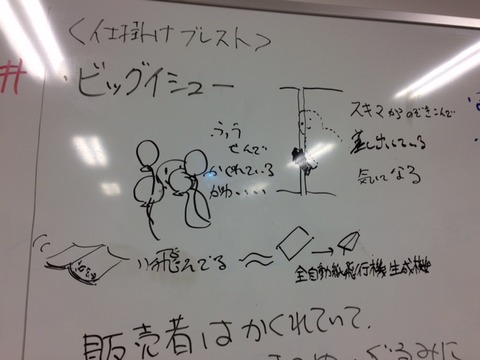 〈仕掛けブレスト〉
#
・ビッグイシュー
ふうう
せんで
かくれている
かわいい
スキマからのぞきこんで
差し出している
気になる
飛んでる ≈ → 全自動紙飛行機生成機
販売者はかくれていて、
ぐるみに